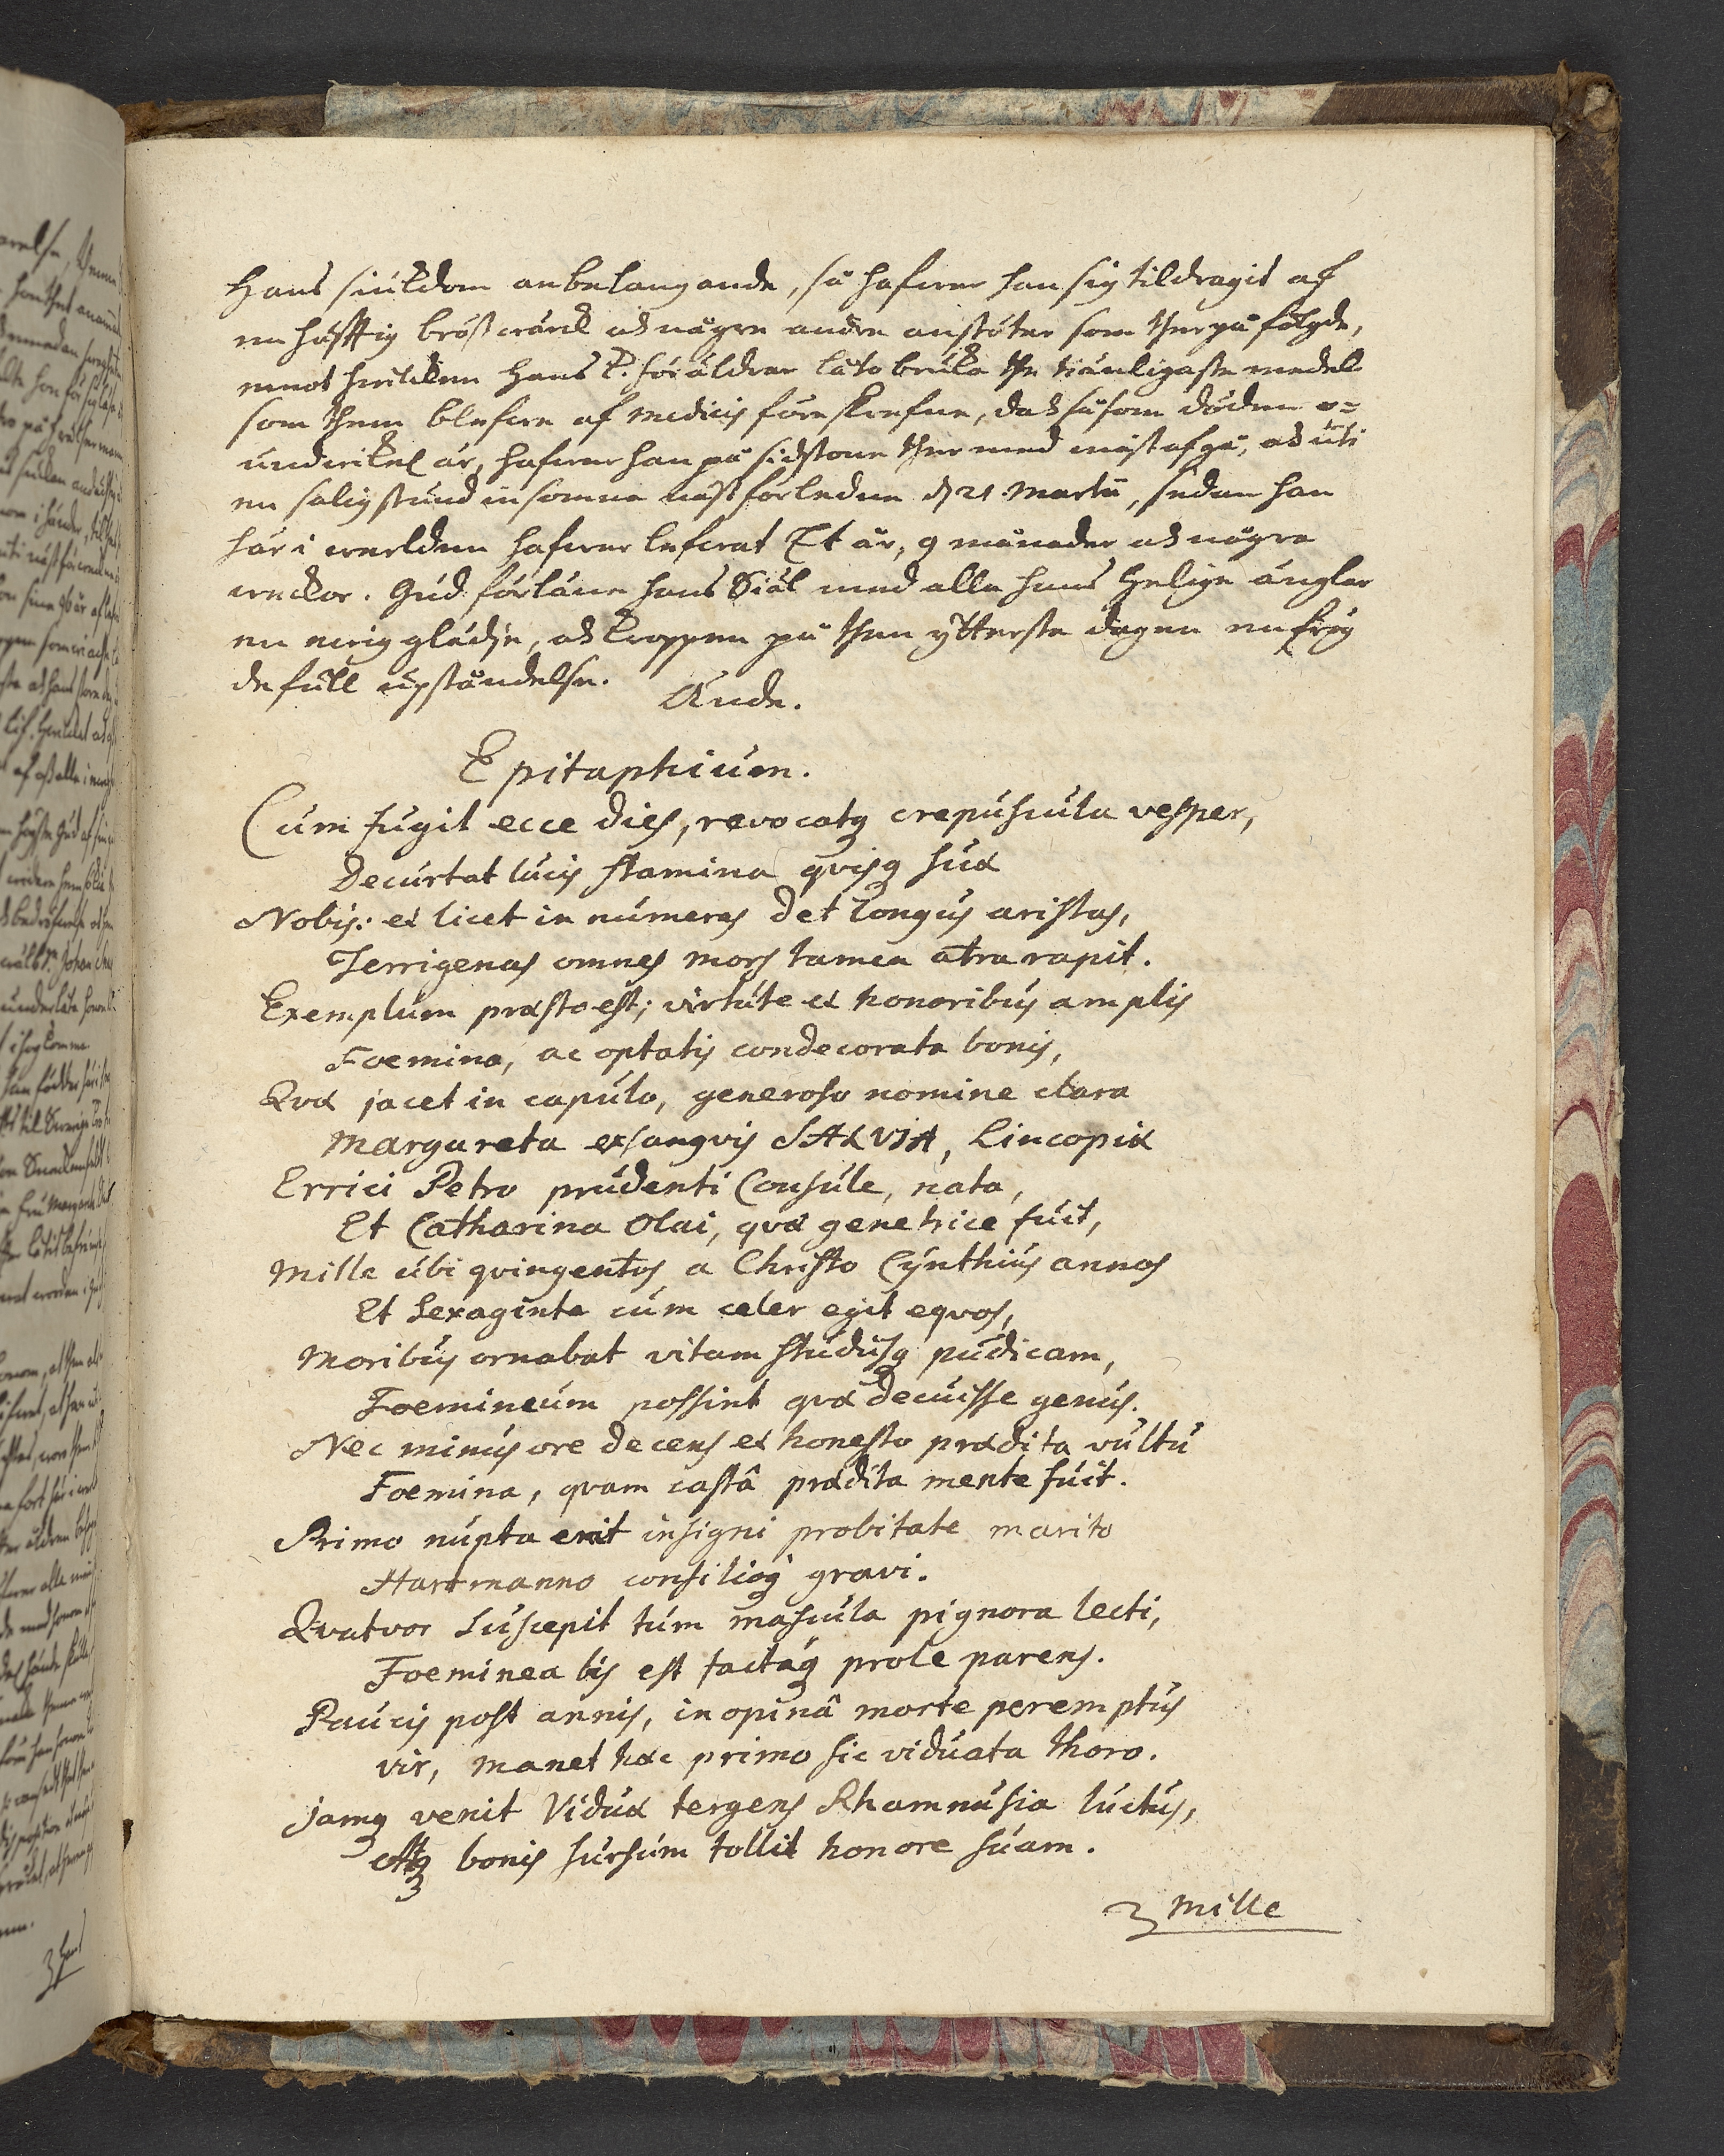 Hans siukdom anbelangande, så hafwer han sig tildragit af
en häfftig bröstwärck och någre andre anstöter som ther på fölgde,
emot hwilcken hans k. föräldrar läto bruka the tiänligaste medel
som them blefwe af Medicis föreskrefne, doch såsom döden o=
undwikel är, hafwer han på sidstone ther med måst afgå, och uti
en salig stund insomna näst förleden d 21. Martii, sedan han
här i werlden hafwer lefwat Et år, 9 månader och några
weckor. Gud förläne hans Siäl med alla hans Helige änglar
en ewig glädje, och kroppen på then ytterste dagen en frög
defull upståndelse.
Ände.
Epitaphium.
Cum fugit ecce dies, revocatq crepuscula vesper,
Decurtat lucis stamina qvisq suæ
Nobis: et licet in numeras det longus aristas,
Terrigenas omnes mors tamen atra rapit.
Exemplum præsto est; virtute et honoribus amplis
Foemina, ac optatis condecorata bonis,
Qvæ jacet in capulo, generoso nomine clara
Margareta exsangvis SALVIA, Lincopiæ
Errici Petro prudenti Consule, nata,
Et Catharina Olai, qvæ genetrice fuit,
Mille ubi qvingentos a Christo Cynthius annos
Et Sexaginta cum celer egit eqvos,
Moribus ornabat vitam studiisq pudicam,
Foemineum possint qvæ decuisse genus.
Nec minus ore decens et honesto prædita vultu
Foemina, qvam castâ prædita mente fuit.
Primo nupta erit insigni probitate marito
Hartmanno consilioq gravi.
Qvatvor Suscepit tum mascula pignora lecti,
Foeminea bis est factaq prole parens.
Paucis post annis, inopinâ morte peremptus
vir, manet hæc primo sic viduata thoro.
Jamq venit Viduæ tergens Rhamnusia luctus,
Atq bonis sursum tollit honore suam.
Mille